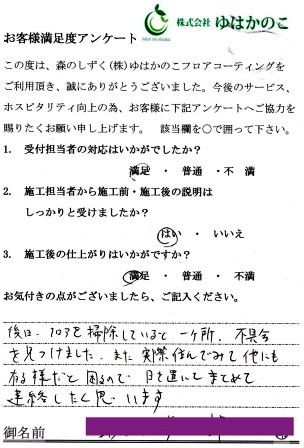 株式会社 ゆはかのこ
お客様満足度アンケート
この度は、森のしずく(株)ゆはかのこフロアコーティングを
ご利用頂き、誠にありがとうございました。今後のサービス、
ホスピタリティ向上の為、お客様に下記アンケートへご協力を
賜りたくお願い申し上げます。 該当欄を○で囲って下さい。
1. 受付担当者の対応はいかがでしたか?
満足 ・ 普通 ・不 満
2. 施工担当者から施工前・施工後の説明は
しっかりと受けましたか?
はい ・ いいえ
3. 施工後の仕上がりはいかがですか?
満足 ・ 普通 ・ 不満
お気付きの点がございましたら、ご記入ください。
後日、フロアを掃除していると一ヶ所、不具合
を見つけました。また実際住んでみて他にも
有る様だと困るので 日を置いてまとめて
連絡したと思います
御名前